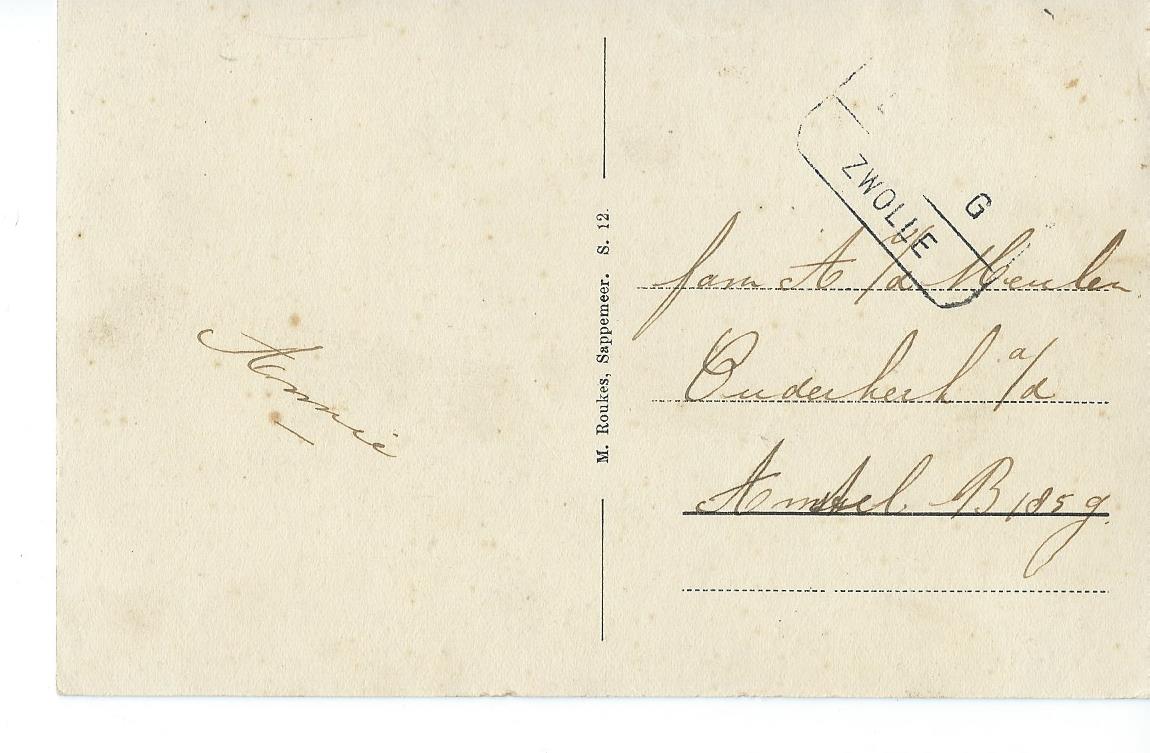 Annie
M. Roukes, Sappemeer. S. 12.
G
ZWOLLE
fam A v/d Meulen
Ouderkerk a/d
Amstel. B 185 g.